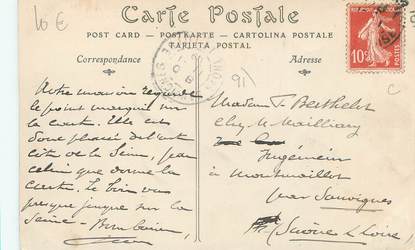 10 €
Carte Postale
POST CARD — POSTKARTE — CARTOLINA POSTALE
TARJETA POSTAL
Correspondance
Adresse
91)
10
C
Notre maison regarde
le point marqué sur
la carte. Elle est
donc placée de l'autre
côté de la Seine, que
celui que donne la
carte. Le bois va
presque jusque sur la
Seine — Bon baiser,
Madame J. Berthelot
chez M Mailliary
Ingénieur
à Montmaillot
par Sauvignes
Saône & Loire